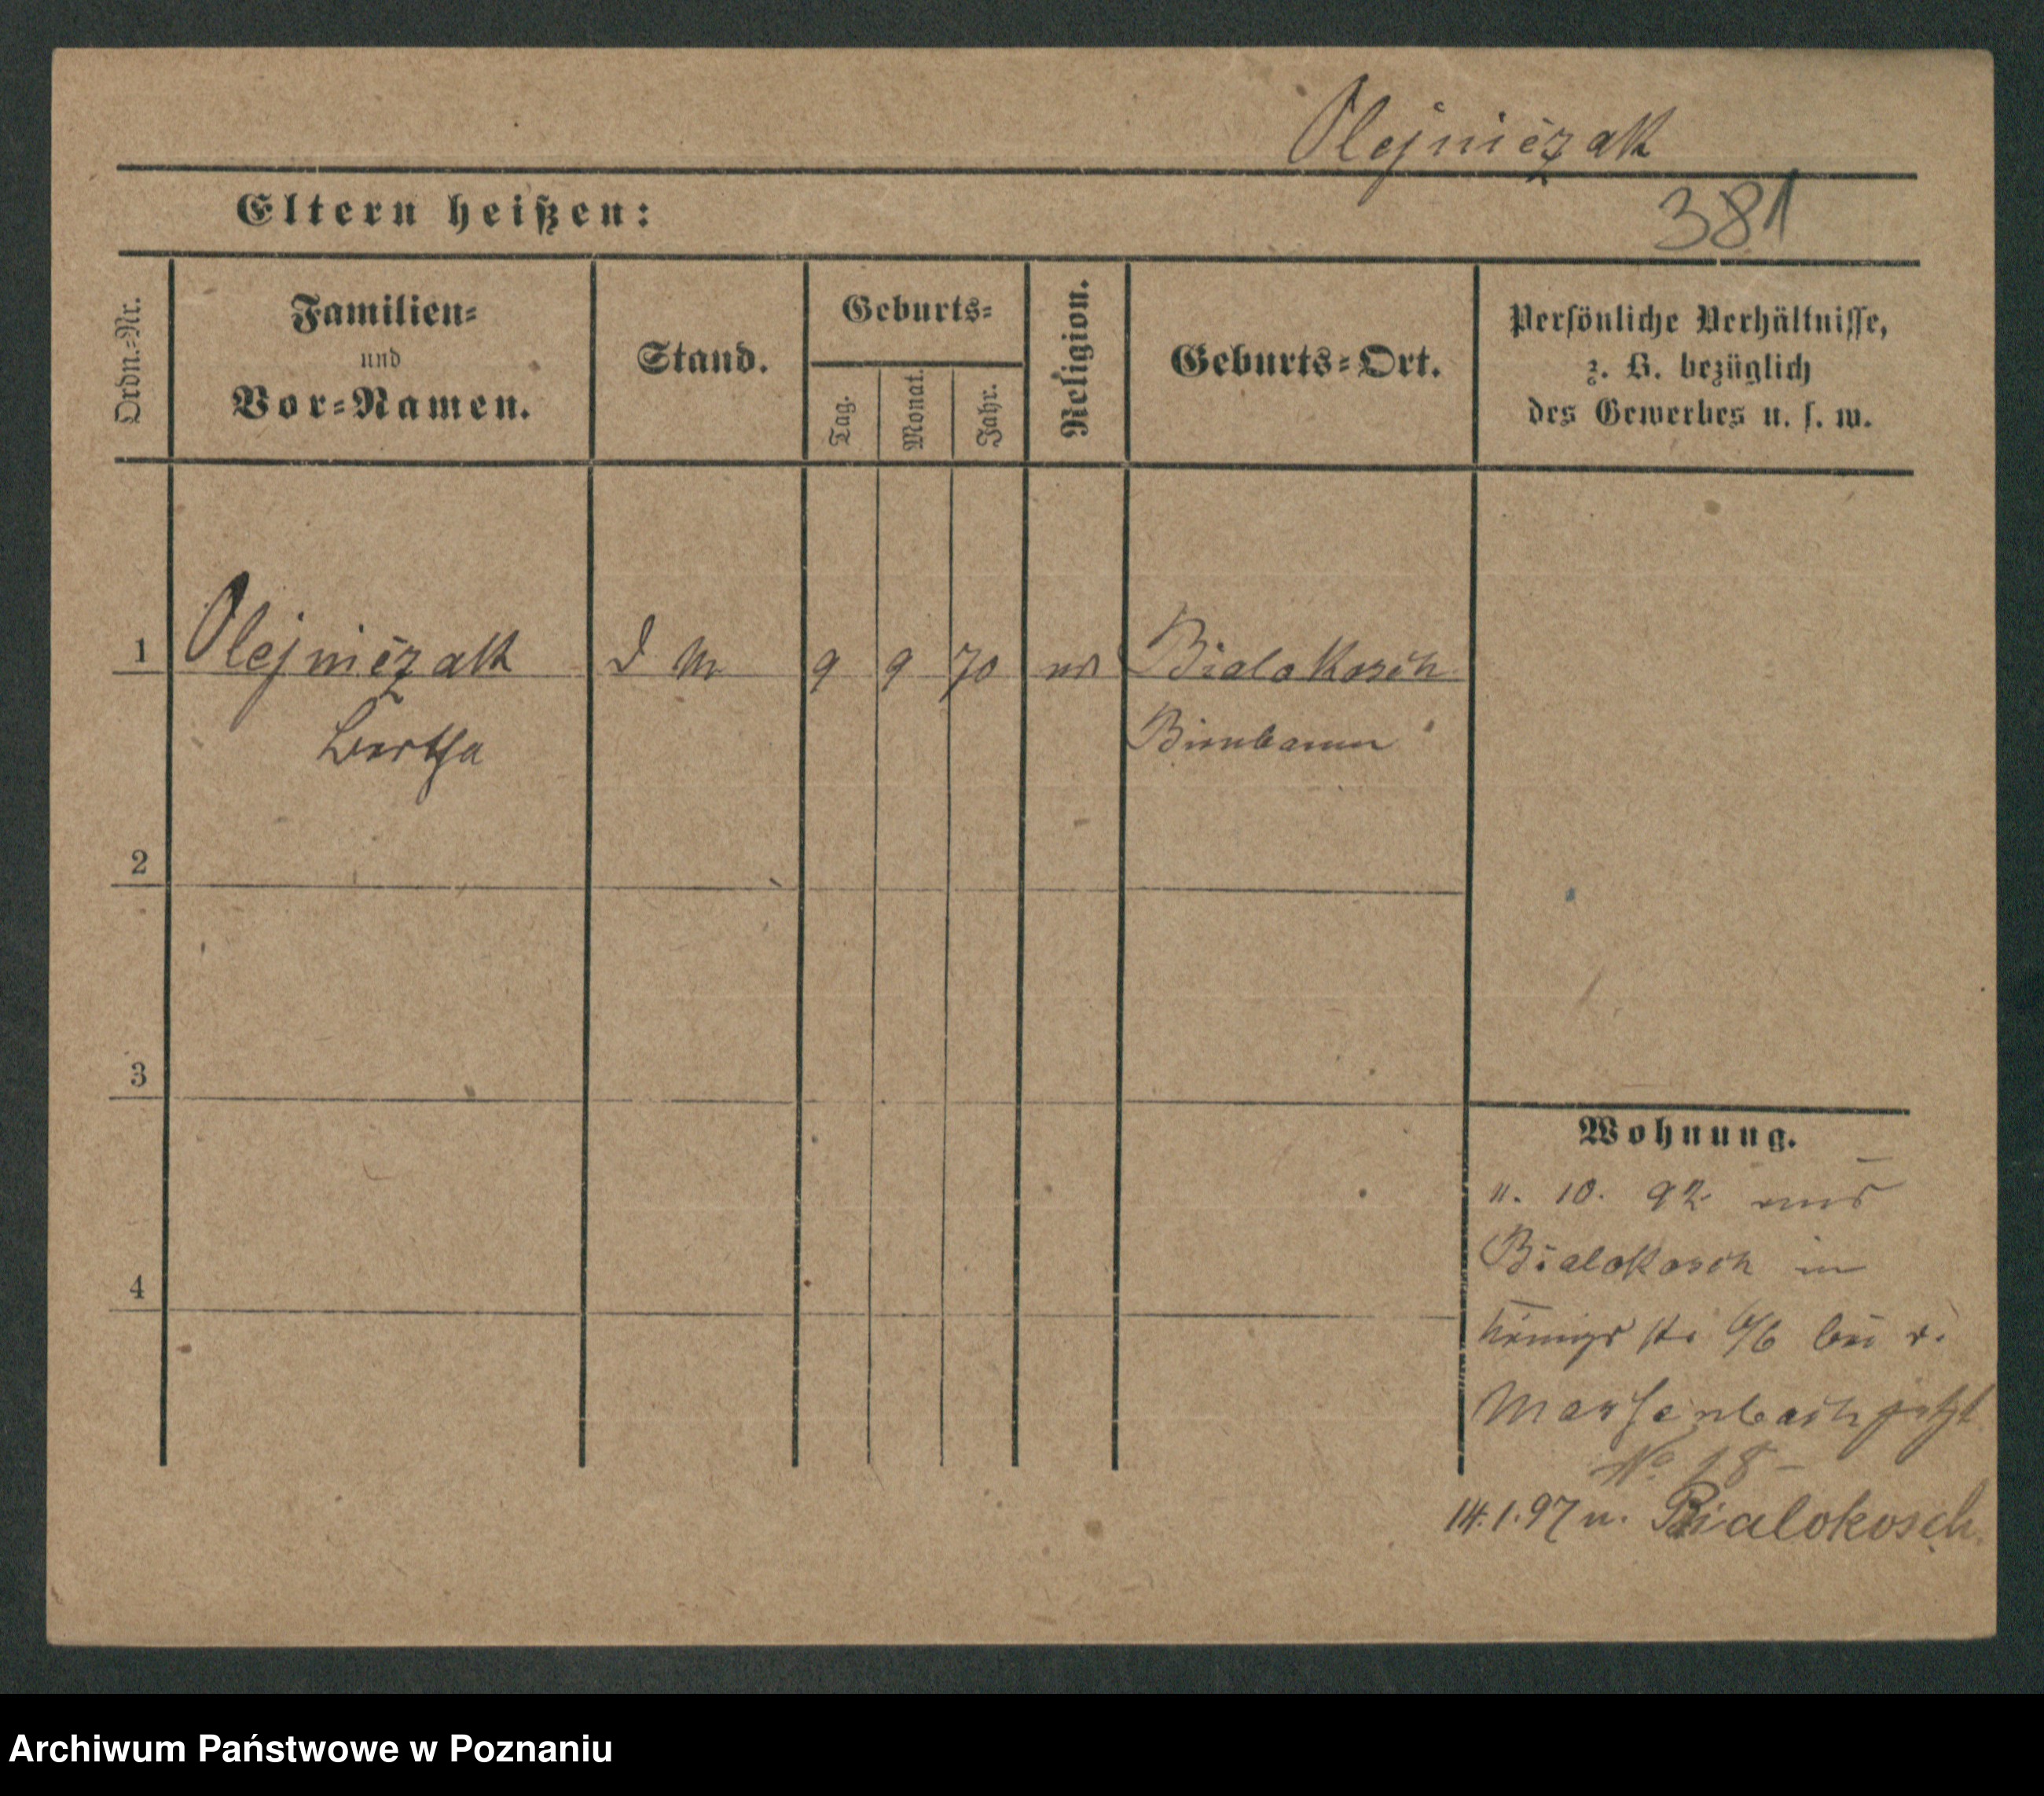 Olejniczak
381
Eltern heißen:
Ordn.-Nr.
Familien-
und
Vor-Namen.
Stand.
Geburts-
Tag.
Monat.
Jahr.
Religion.
Geburts-Ort.
Persönliche Verhältnisse,
z. B. bezüglich
des Gewerbes u. s. w.
1 Olejniczak D M 9 9 70 Bialokosch
Bertha Birnbaum
2
3
4
Wohnung.
11. 10. 92 aus
Bialokosch in
Königsstr 6/6 bei v.
Massenbach jetzt
No 18
14.1.97 n. Bialokosch.
Archiwum Państwowe w Poznaniu